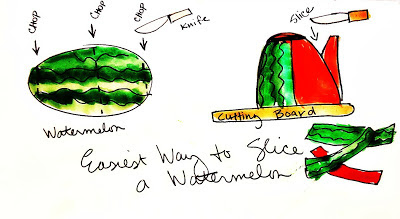 CHOP
CHOP
CHOP
Knife
Slice
Cutting Board
Watermelon
Easiest Way to Slice
a Watermelon